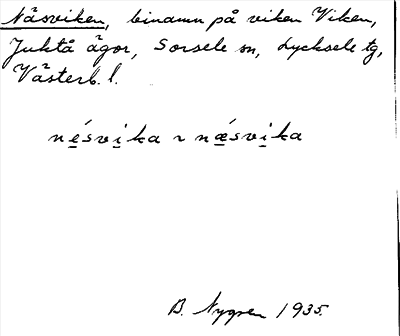 Näsviken, binamn på viken Viken,
Juktå ägor, Sorsele sn, Lycksele tg,
Västerb. l.
nésvika ~ nǽsvika
B. Nygren 1935.